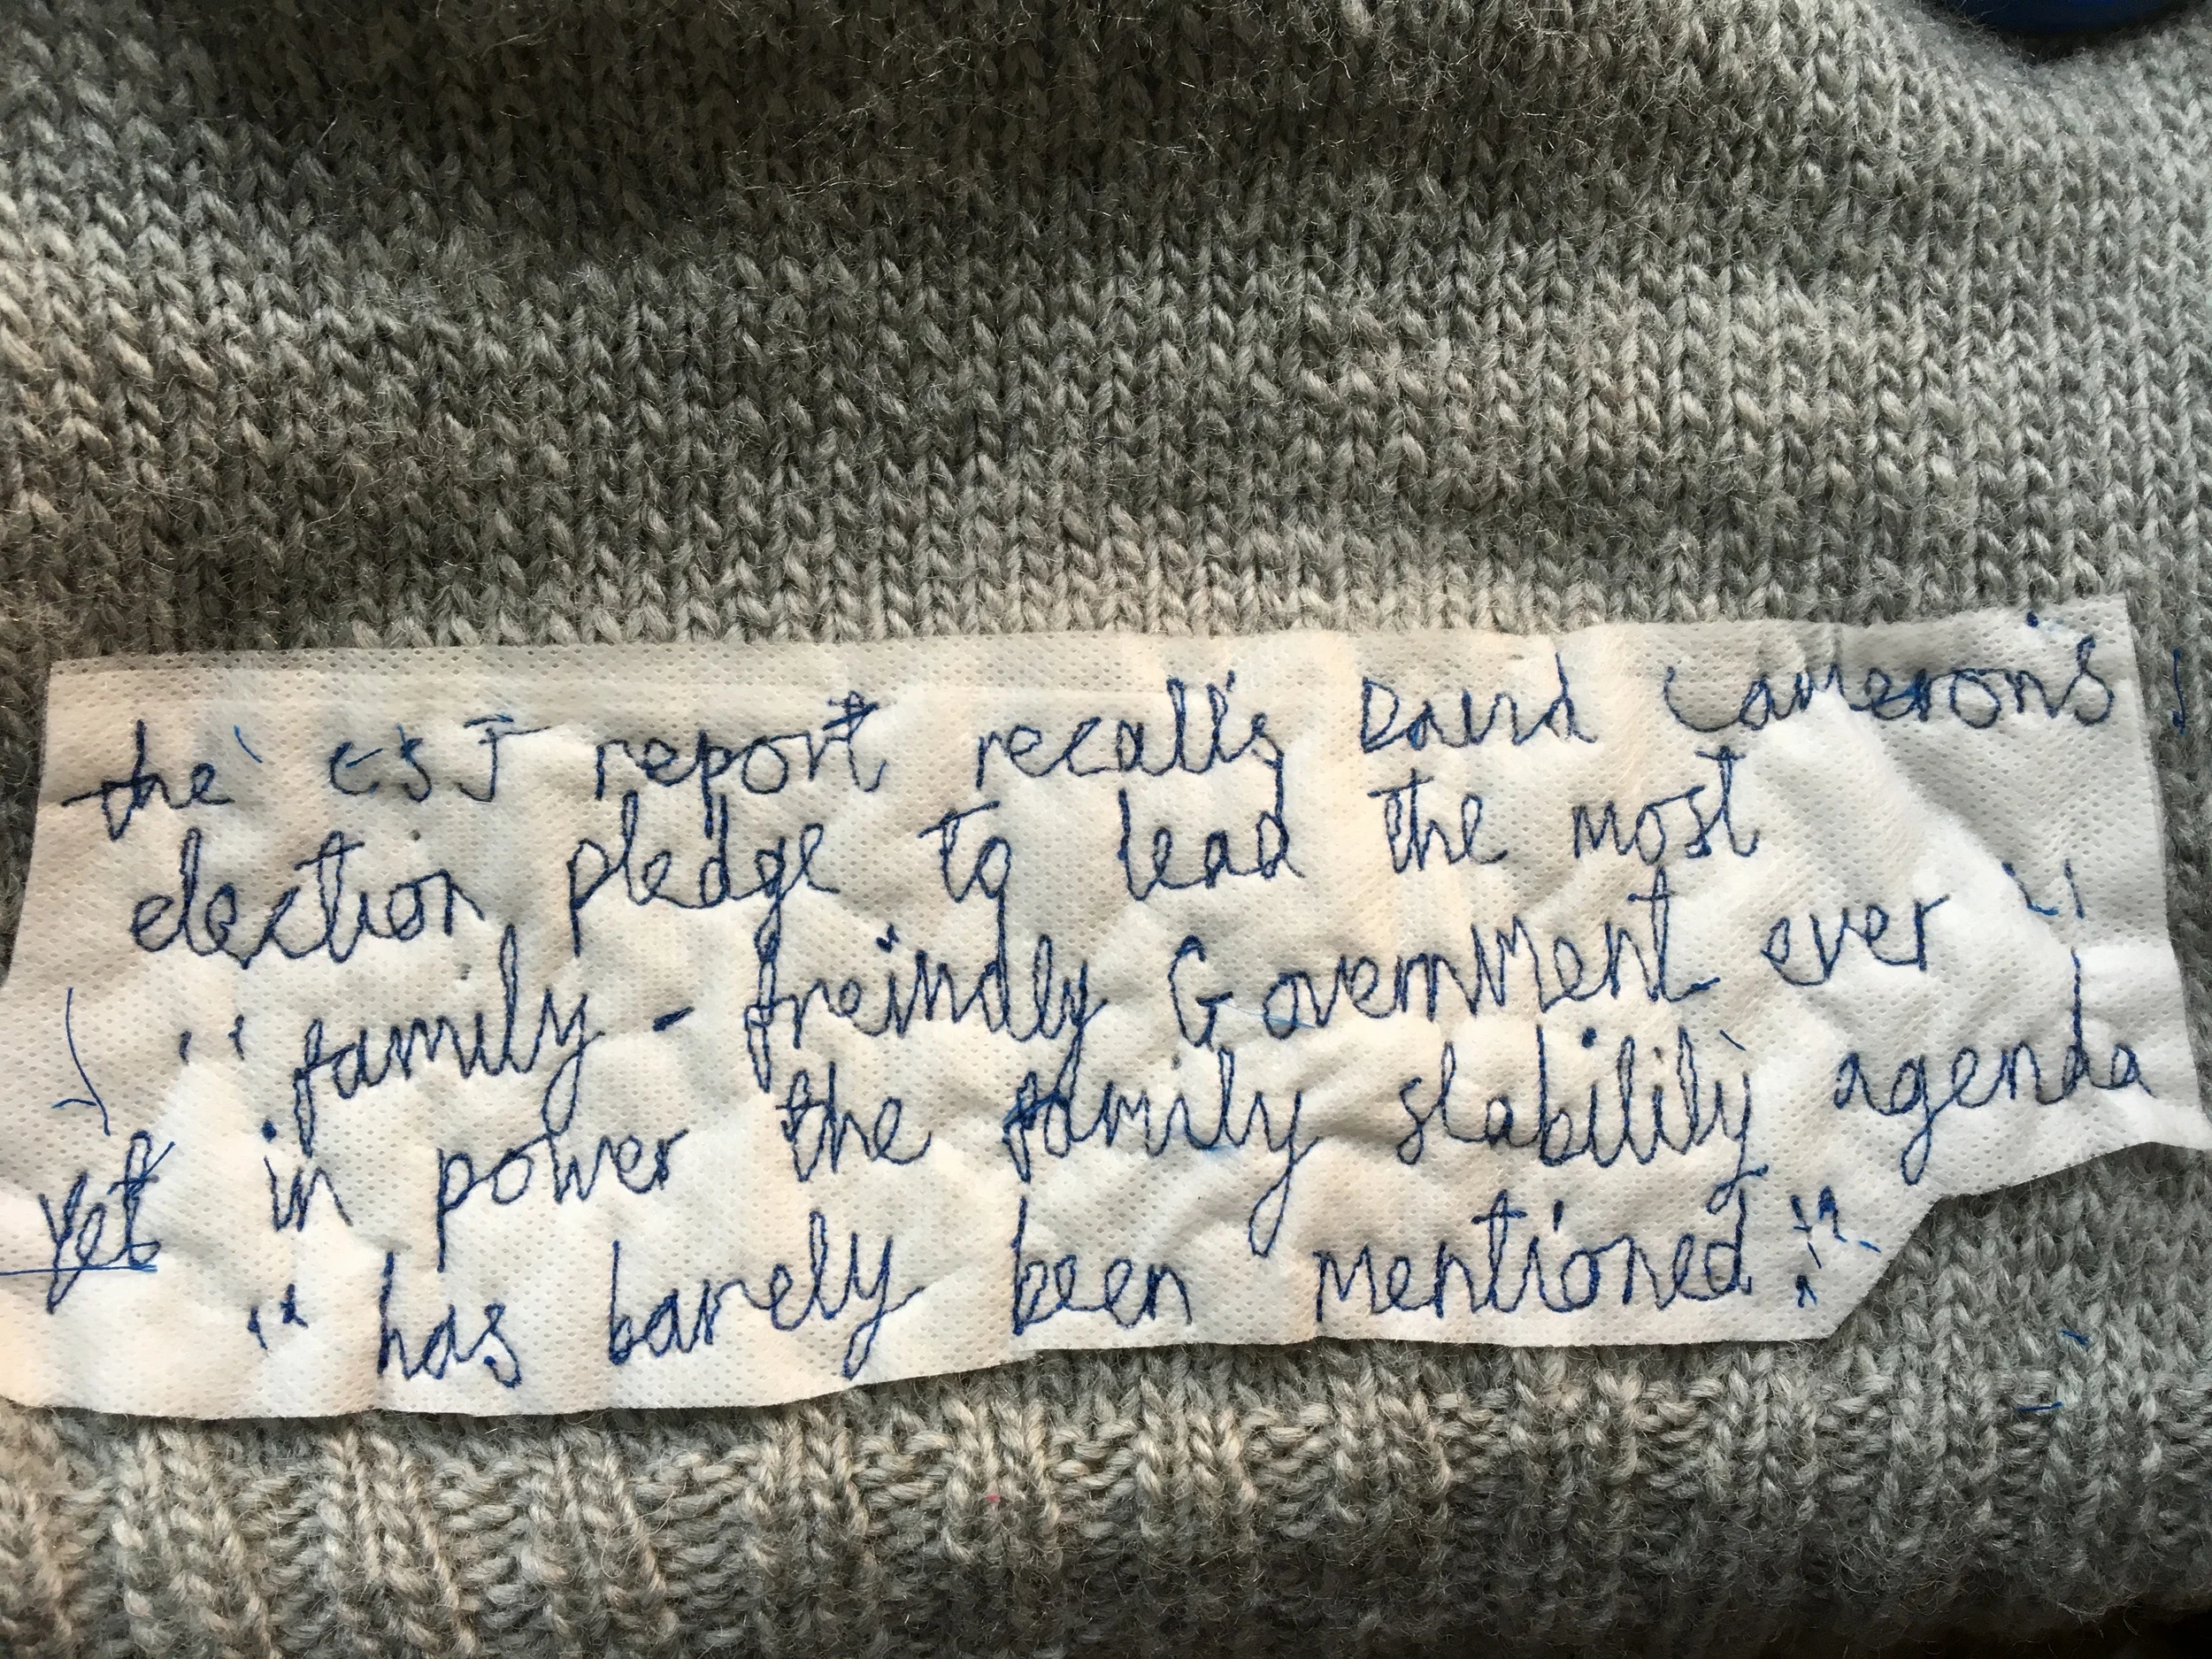 the CSJ report recalls David Cameron's
election pledge to lead the most
"family - freindly Government ever"
yet in power the family stability agenda
"has barely been mentioned".